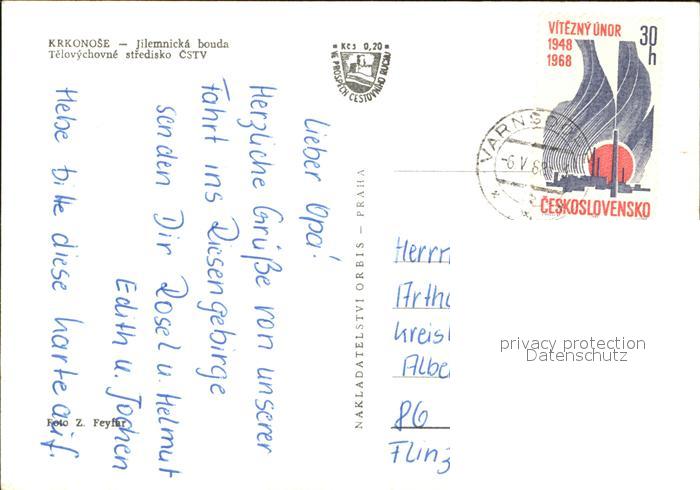 KRKONOŠE — Jilemnická bouda
Tělovýchovné středisko ČSTV
Kčs 0,20
VE PROSPĚCH CESTOVNÍHO RUCHU
VÍTĚZNÝ ÚNOR
1948
1968
30
h
ČESKOSLOVENSKO
VARNSD
-6.V.68
Lieber Opa!
Herzliche Grüße von unserer
Fahrt ins Riesengebirge
senden Dir Rosel u. Helmut
Edith u. Jochen
Hebe bitte diese Karte auf.
NAKLADATELSTVÍ ORBIS — PRAHA
Herrn
Arthu
Kreis
Albe
86
Flinz
privacy protection
Datenschutz
Foto Z. Feyfar